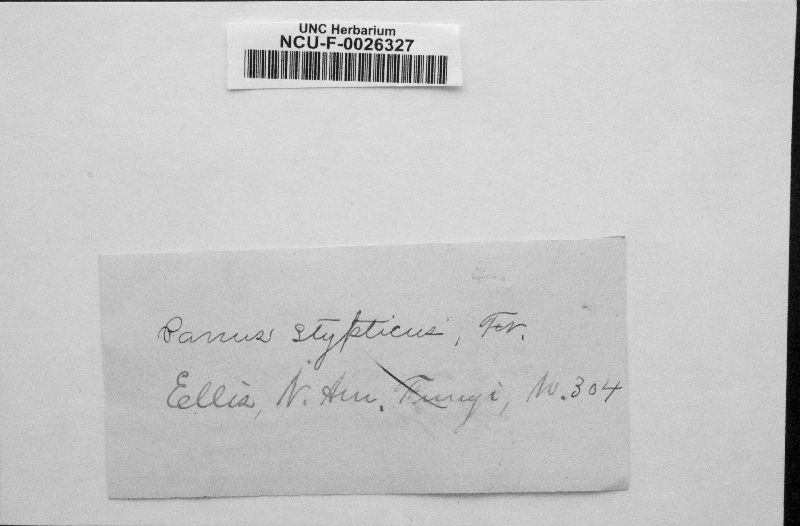 UNC Herbarium
NCU-F-0026327
Panus stypticus, Fr.
Ellis, N. Am. Fungi, No. 304